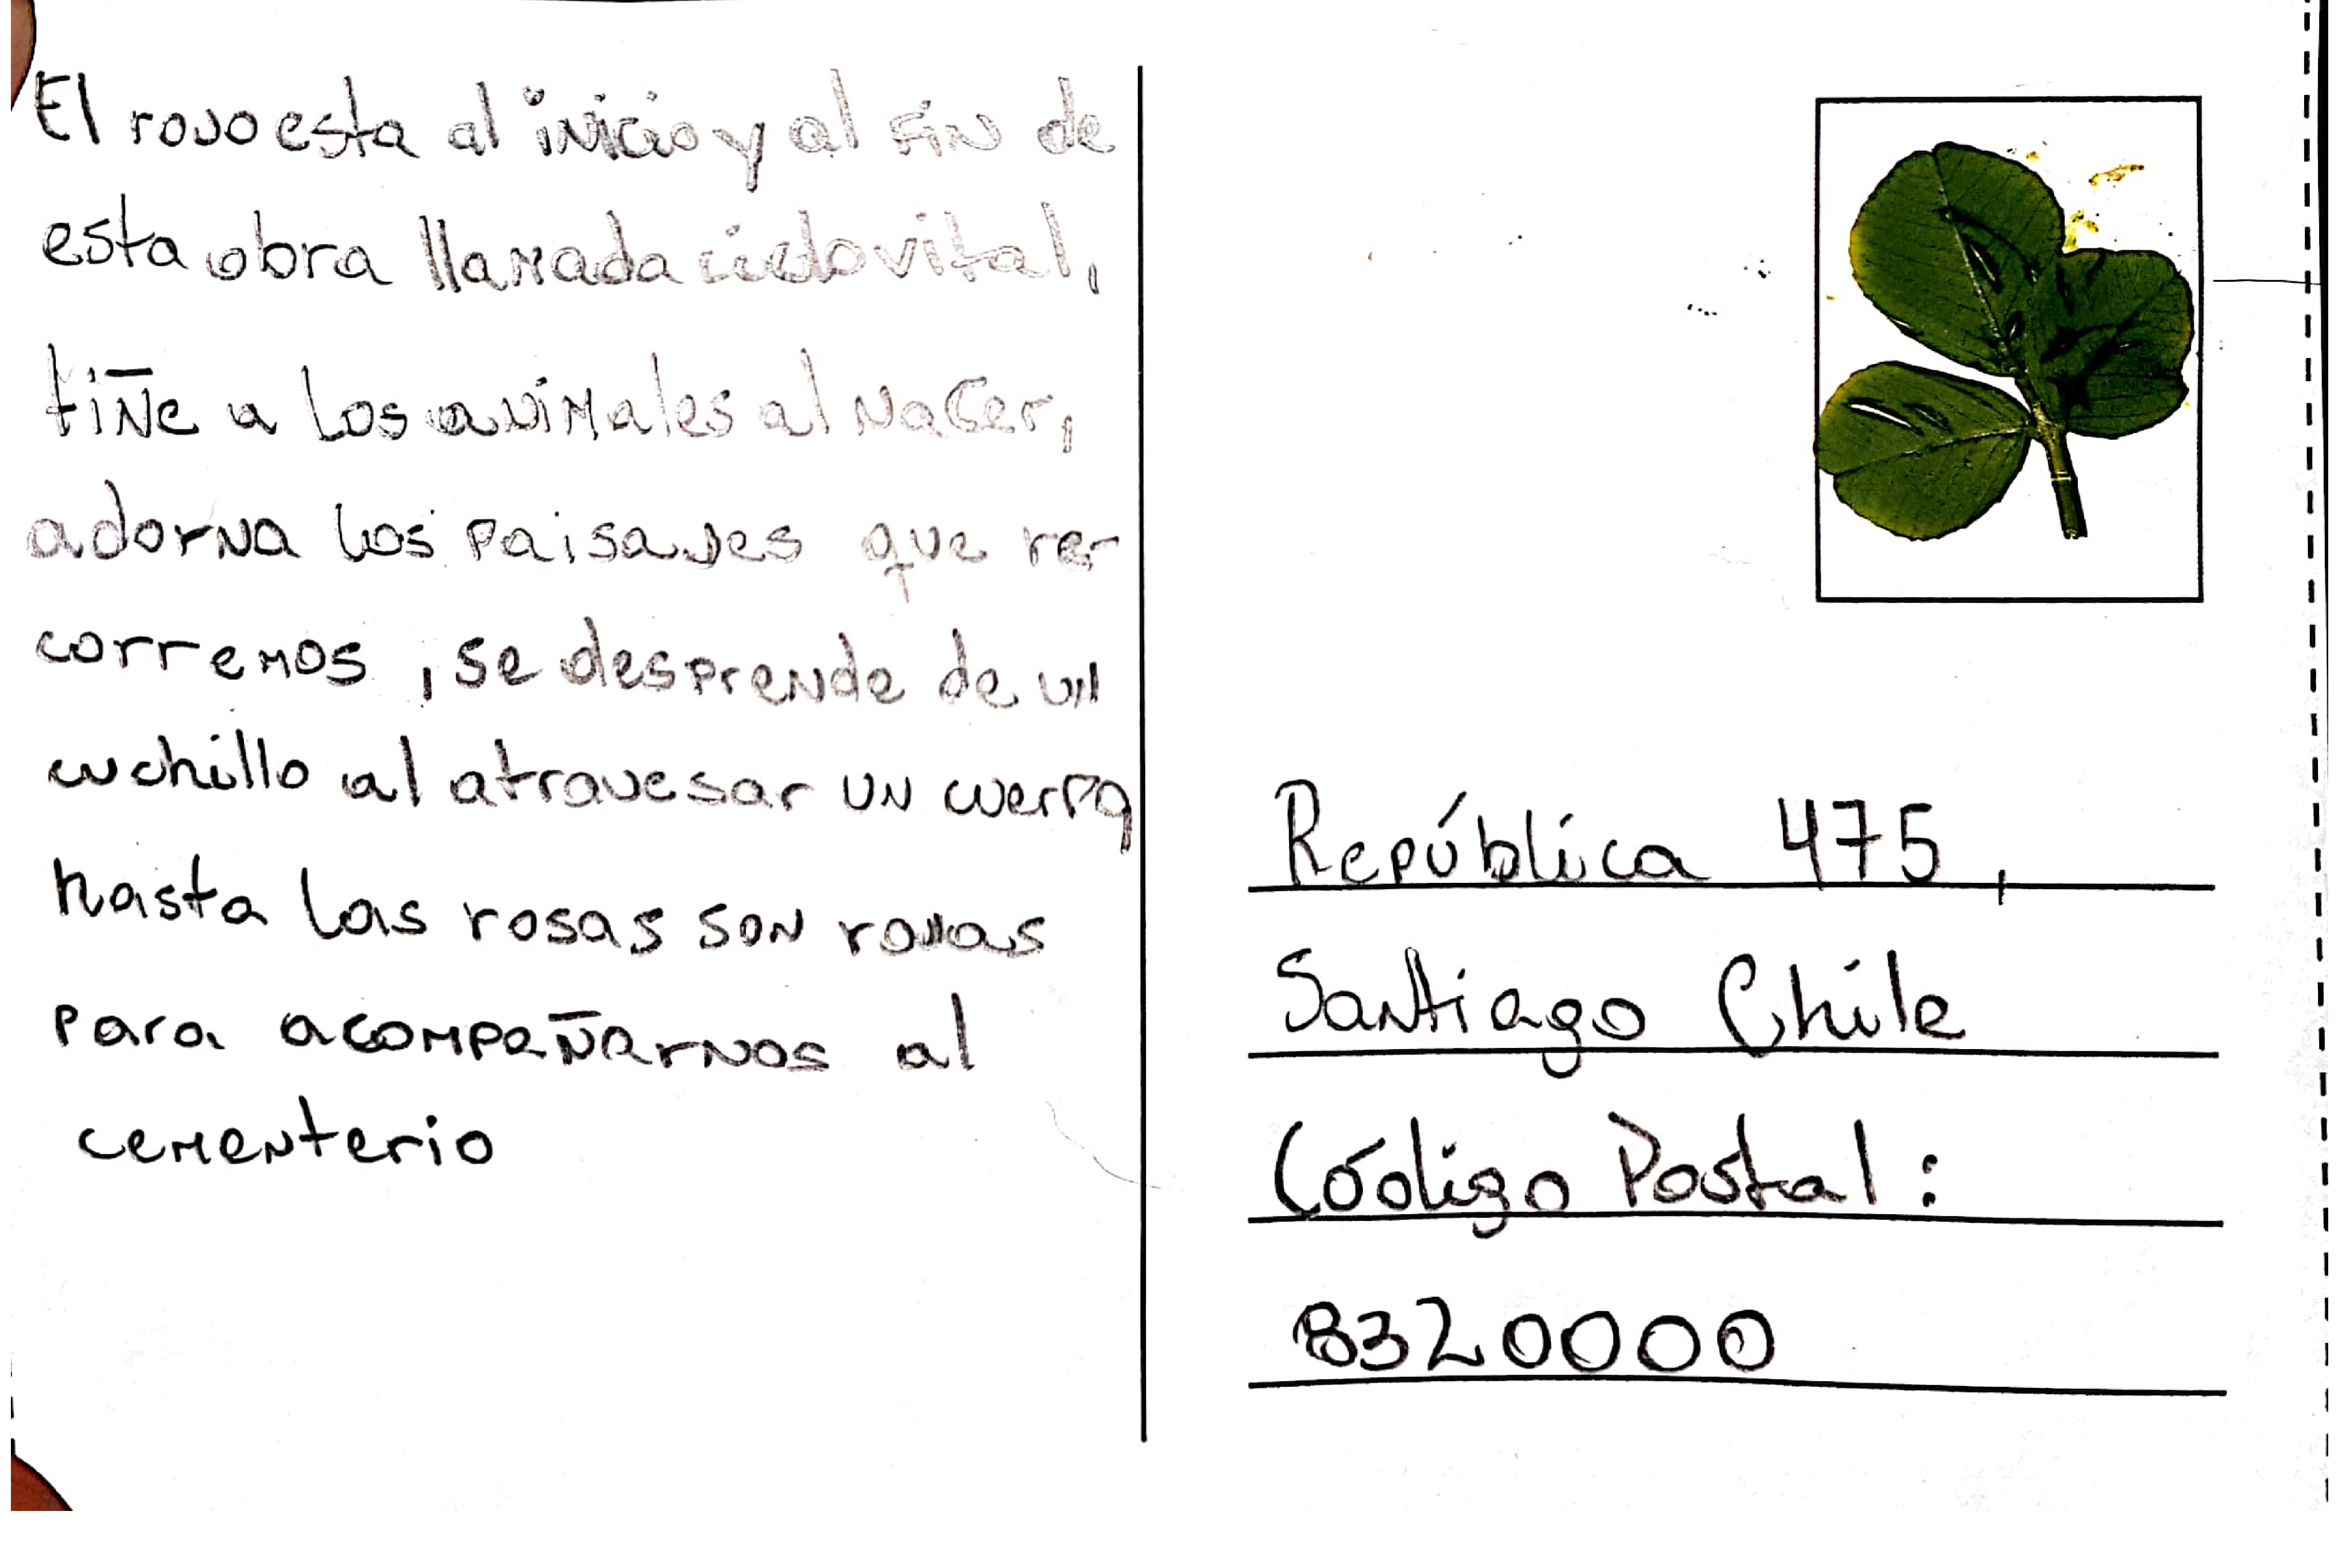 El rojo esta al inicio y al fin de
esta obra llamada ciclo vital,
tiñe a los animales al nacer,
adorna los paisajes que re-
corremos, se desprende de un
cuchillo al atravesar un cuerpo,
hasta las rosas son rojas
para acompañarnos al
cementerio
República 475,
Santiago Chile
Código Postal:
8320000